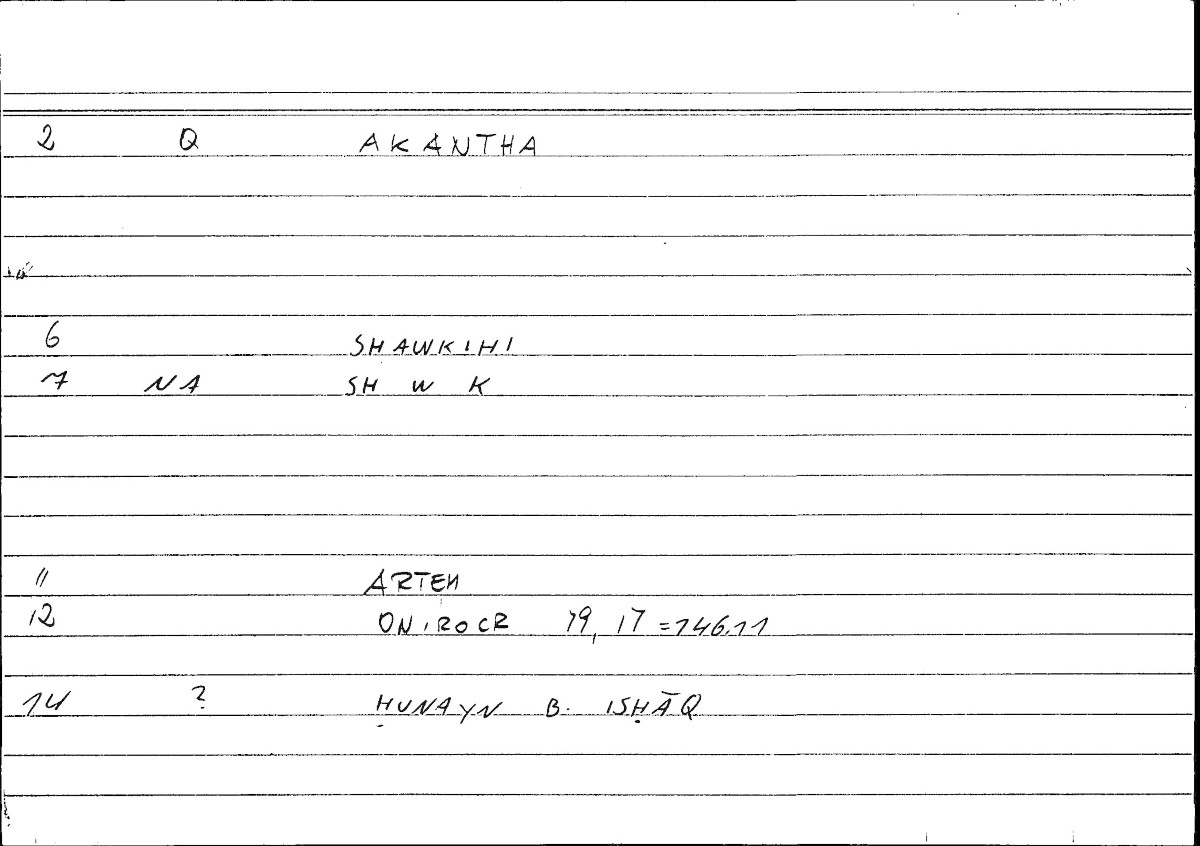 2 Q AKANTHA
6 SHAWKIHI
7 NA SH W K
11 ARTEM
12 ONIROCR 19, 17 = 146.11
14 ? ḤUNAYN B. ISḤĀQ